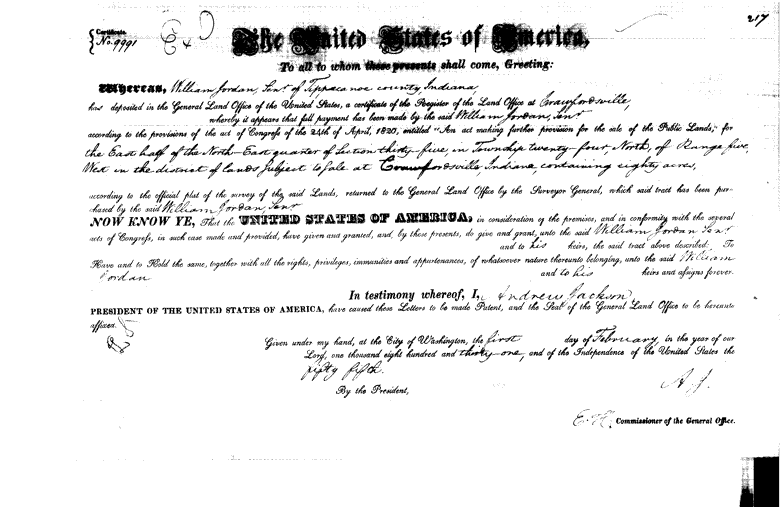 217
Certificate
No. 9991
The United States of America,
To all to whom these presents shall come, Greeting:
WHEREAS, William Jordan, Senr of Tippacanoe county, Indiana,
has deposited in the General Land Office of the United States, a certificate of the Register of the Land Office at Crawfordsville,
whereby it appears that full payment has been made by the said William Jordan, Senr
according to the provisions of the act of Congress of the 24th of April, 1820, entitled "An act making further provision for the sale of the Public Lands," for
the East half of the North East quarter of Section thirty five, in Township twenty four North, of Range five,
West in the district of lands subject to sale at Crawfordsville Indiana, containing eighty acres,
according to the official plat of the survey of the said Lands, returned to the General Land Office by the Surveyor General, which said tract has been pur-
chased by the said William Jordan Senr
NOW KNOW YE, That the UNITED STATES OF AMERICA, in consideration of the premises, and in conformity with the several
acts of Congress, in such case made and provided, have given and granted, and, by these presents, do give and grant, unto the said William Jordan Senr
and to his heirs, the said tract above described: To
Have and to Hold the same, together with all the rights, privileges, immunities and appurtenances, of whatsoever nature thereunto belonging, unto the said William
Jordan and to his heirs and assigns forever.
In testimony whereof, I, Andrew Jackson
PRESIDENT OF THE UNITED STATES OF AMERICA, have caused these Letters to be made Patent, and the Seal of the General Land Office to be hereunto
affixed.
Given under my hand, at the City of Washington, the first day of February, in the year of our
Lord, one thousand eight hundred and thirty one, and of the Independence of the United States the
fifty fifth.
By the President,
A. J.
E. H. Commissioner of the General Office.